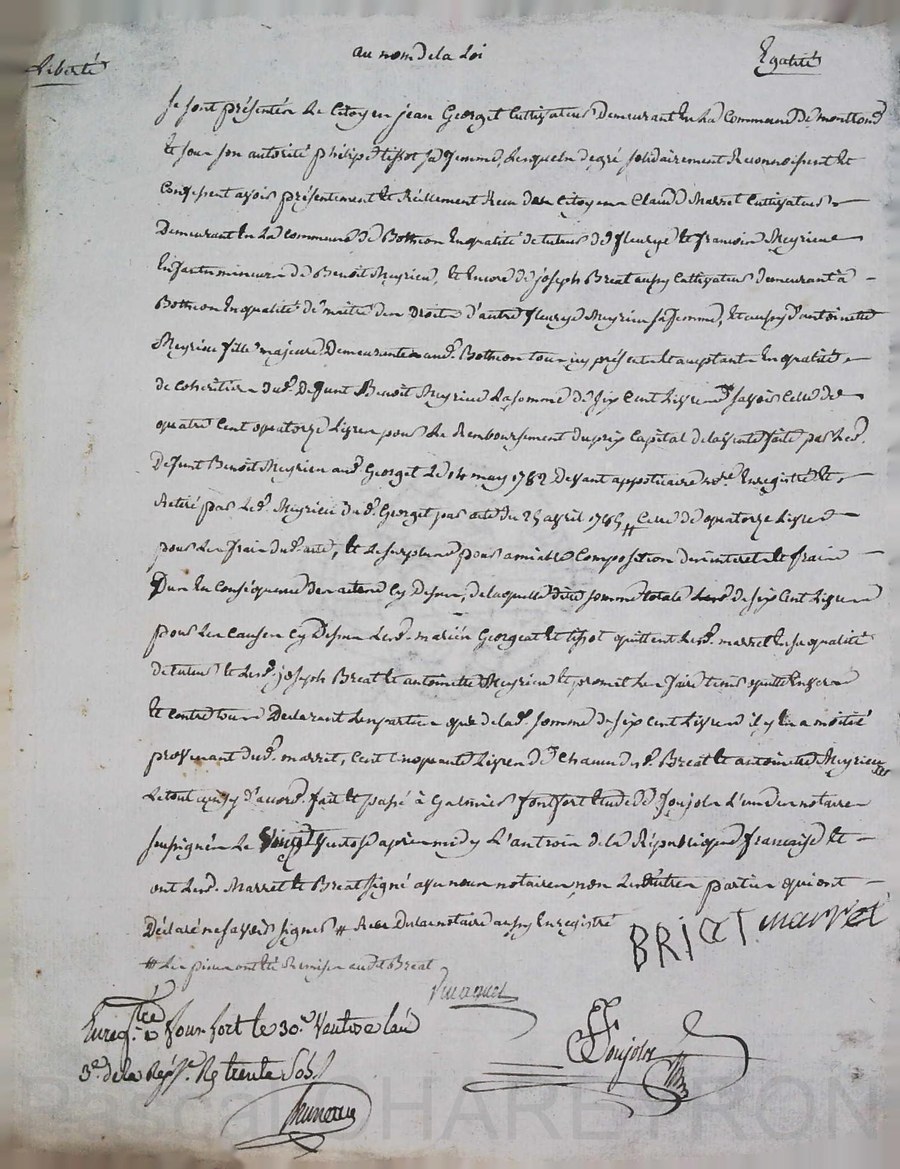 Liberté au nom de la Loi Egalité
se sont présentés Le Citoyen jean Georget Cultivateur demeurant En La Commune de montrond
Et sous son autorité philipe tissot sa femme, Lesquels de gré solidairement Reconnoissent Et
Confessent avoir présentement Et Réellement Recu des Citoyens Claude Marret Cultivateur
Demeurant En La Commune de Botheon En qualité de tuteur de fleurye Et francois Meyrieu
Enfants mineurs de Benoit Meyrieu, Et Encore de joseph Breat aussy Cultivateur demeurant à
Botheon En qualité de maitre des Droits d'autre fleurye Meyrieu sa femme, Et aussy d'antoinette
Meyrieu fille majeure Demeurante aud. Botheon tous icy présents Et acceptants En qualité
de Coheritiers dud. Defunt Benoit Meyrieu La somme de six Cent Livres savoir Celle de
quatre Cent quatorze Livres pour Le Remboursement du prix Capital de la vente faite par Led.
Defunt Benoit Meyrieu aud. Georget Le 14 may 1782 Devant notre Enregistré Et
par Led. Meyrieu dud. Georget par acte du 25 avril Celle de quatorze Livres
pour Les frais dud. acte, Et Le surplus pour amiable Composition des interets Et frais
Dus En Conséquence des actes Cy Dessus, de laquelle dite somme totale de six Cent Livres
pour Les Causes Cy Dessus Lesd. mariés Georget Et tissot quittent Led. marret En sa qualité
de tuteur Et Lesd. joseph Breat Et antoinette Meyrieu Et promettent Les faire tenir quitte Envers
Et Contre tous Declarant Les parties que de lad. somme de six Cent Livres il y En a moitié
provenant dud. marret, Cent Cinquante Livres de Chacun desd. Breat Et antoinette Meyrieu
Le tout ainsy d'accord. fait Et passé à Galmier fontfort Etude de Joujoln L'un des notaires
soussignés Le Vingt Ventose après midy L'an trois de la République francaise Et
ont Lesd. Marret Et Breat signé avec nous notaires, non Les autres parties qui ont
Déclaré ne savoir signer # notaire aussy Enregistré
# Les pieces ont été Remises audit Breat
BRIAT marret
Enregistré à fonfort le 30. Ventose l'an
3e. de la Répque. Rç trente Sols
Joujoln
Pascal CHARETRON